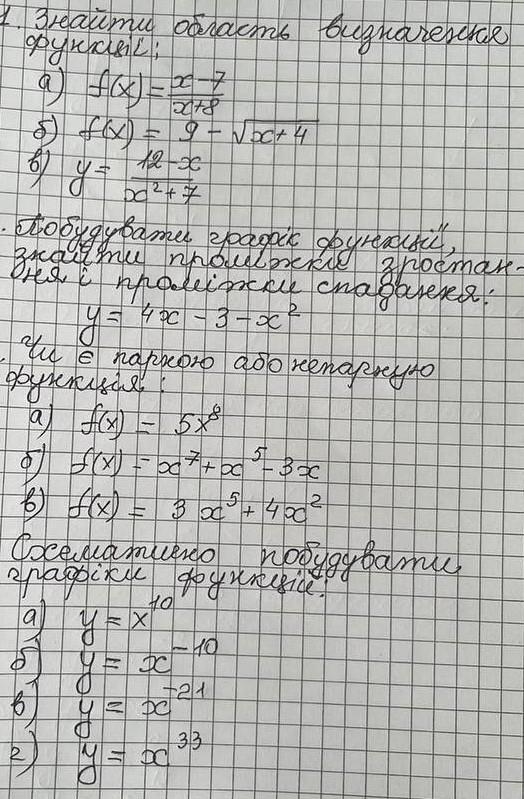 1. Знайти область визначення
функції:
а) f(x) = x-7/x+8
б) f(x) = 9 - √x+4
в) y = 12-x/x²+7
. Побудувати графік функції,
знайти проміжки зростан-
ня і проміжки спадання:
y = 4x - 3 - x²
. Чи є парною або непарною
функція:
а) f(x) = 5x⁸
б) f(x) = x⁷ + x⁵ - 3x
в) f(x) = 3x⁵ + 4x²
Схематично побудувати
графіки функцій:
а) y = x¹⁰
б) y = x⁻¹⁰
в) y = x⁻²¹
г) y = x³³